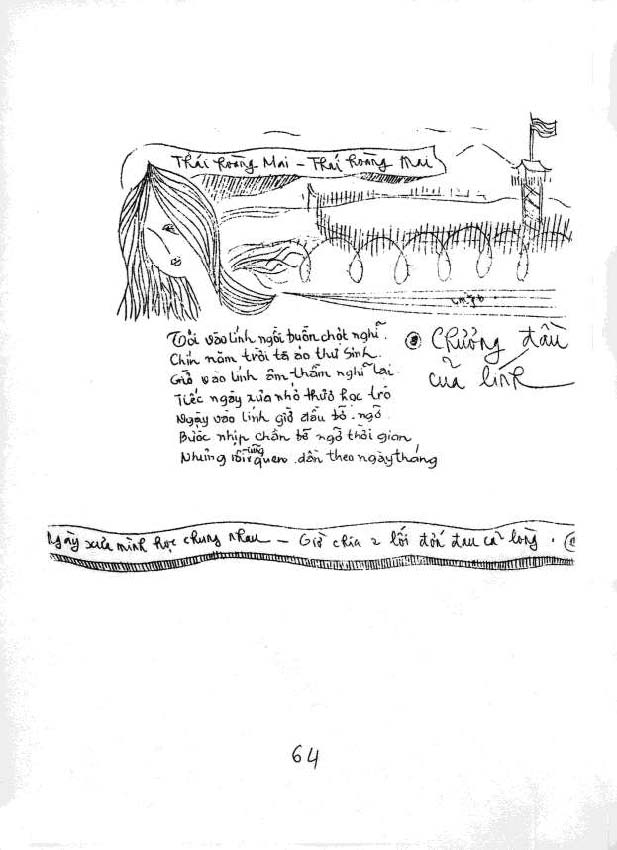 Thái hoàng Mai – Thái hoàng Mai
Tôi vào lính ngồi buồn chợt nghĩ.
Chín năm trời tà áo thư sinh.
Giờ vào lính âm thầm nghĩ lại
Tiếc ngày xưa nhỏ thuở học trò
Ngày vào lính giờ đầu bỡ ngỡ
Bước nhịp chân bỡ ngỡ thời gian
Nhưng rồi cũng quen dần theo ngày tháng
Chương đầu
của lính
Ngày xưa mình học chung nhau – Giờ chia 2 lối đớn đau cả lòng.
64